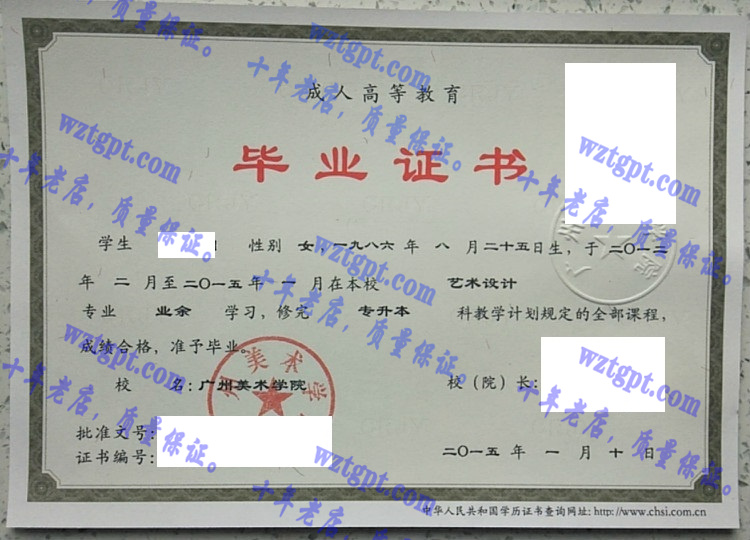 成人高等教育
毕业证书
学生 性别 女,一九八六年 八 月二十五日生,于二〇一二
年 二 月至二〇一五年 一 月在本校 艺术设计
专业 业余 学习,修完 专升本 科教学计划规定的全部课程,
成绩合格,准予毕业。
校 名:广州美术学院
校(院)长:
批准文号:
证书编号:
二〇一五年 一 月 十 日
中华人民共和国学历证书查询网址: http://www.chsi.com.cn
广州美术学院
wztgpt.com
十年老店,质量保证。
wztgpt.com
十年老店,质量保证。
wztgpt.com
十年老店,质量保证。
wztgpt.com
十年老店,质量保证。
wztgpt.com
十年老店,质量保证。
wztgpt.com
十年老店,质量保证。